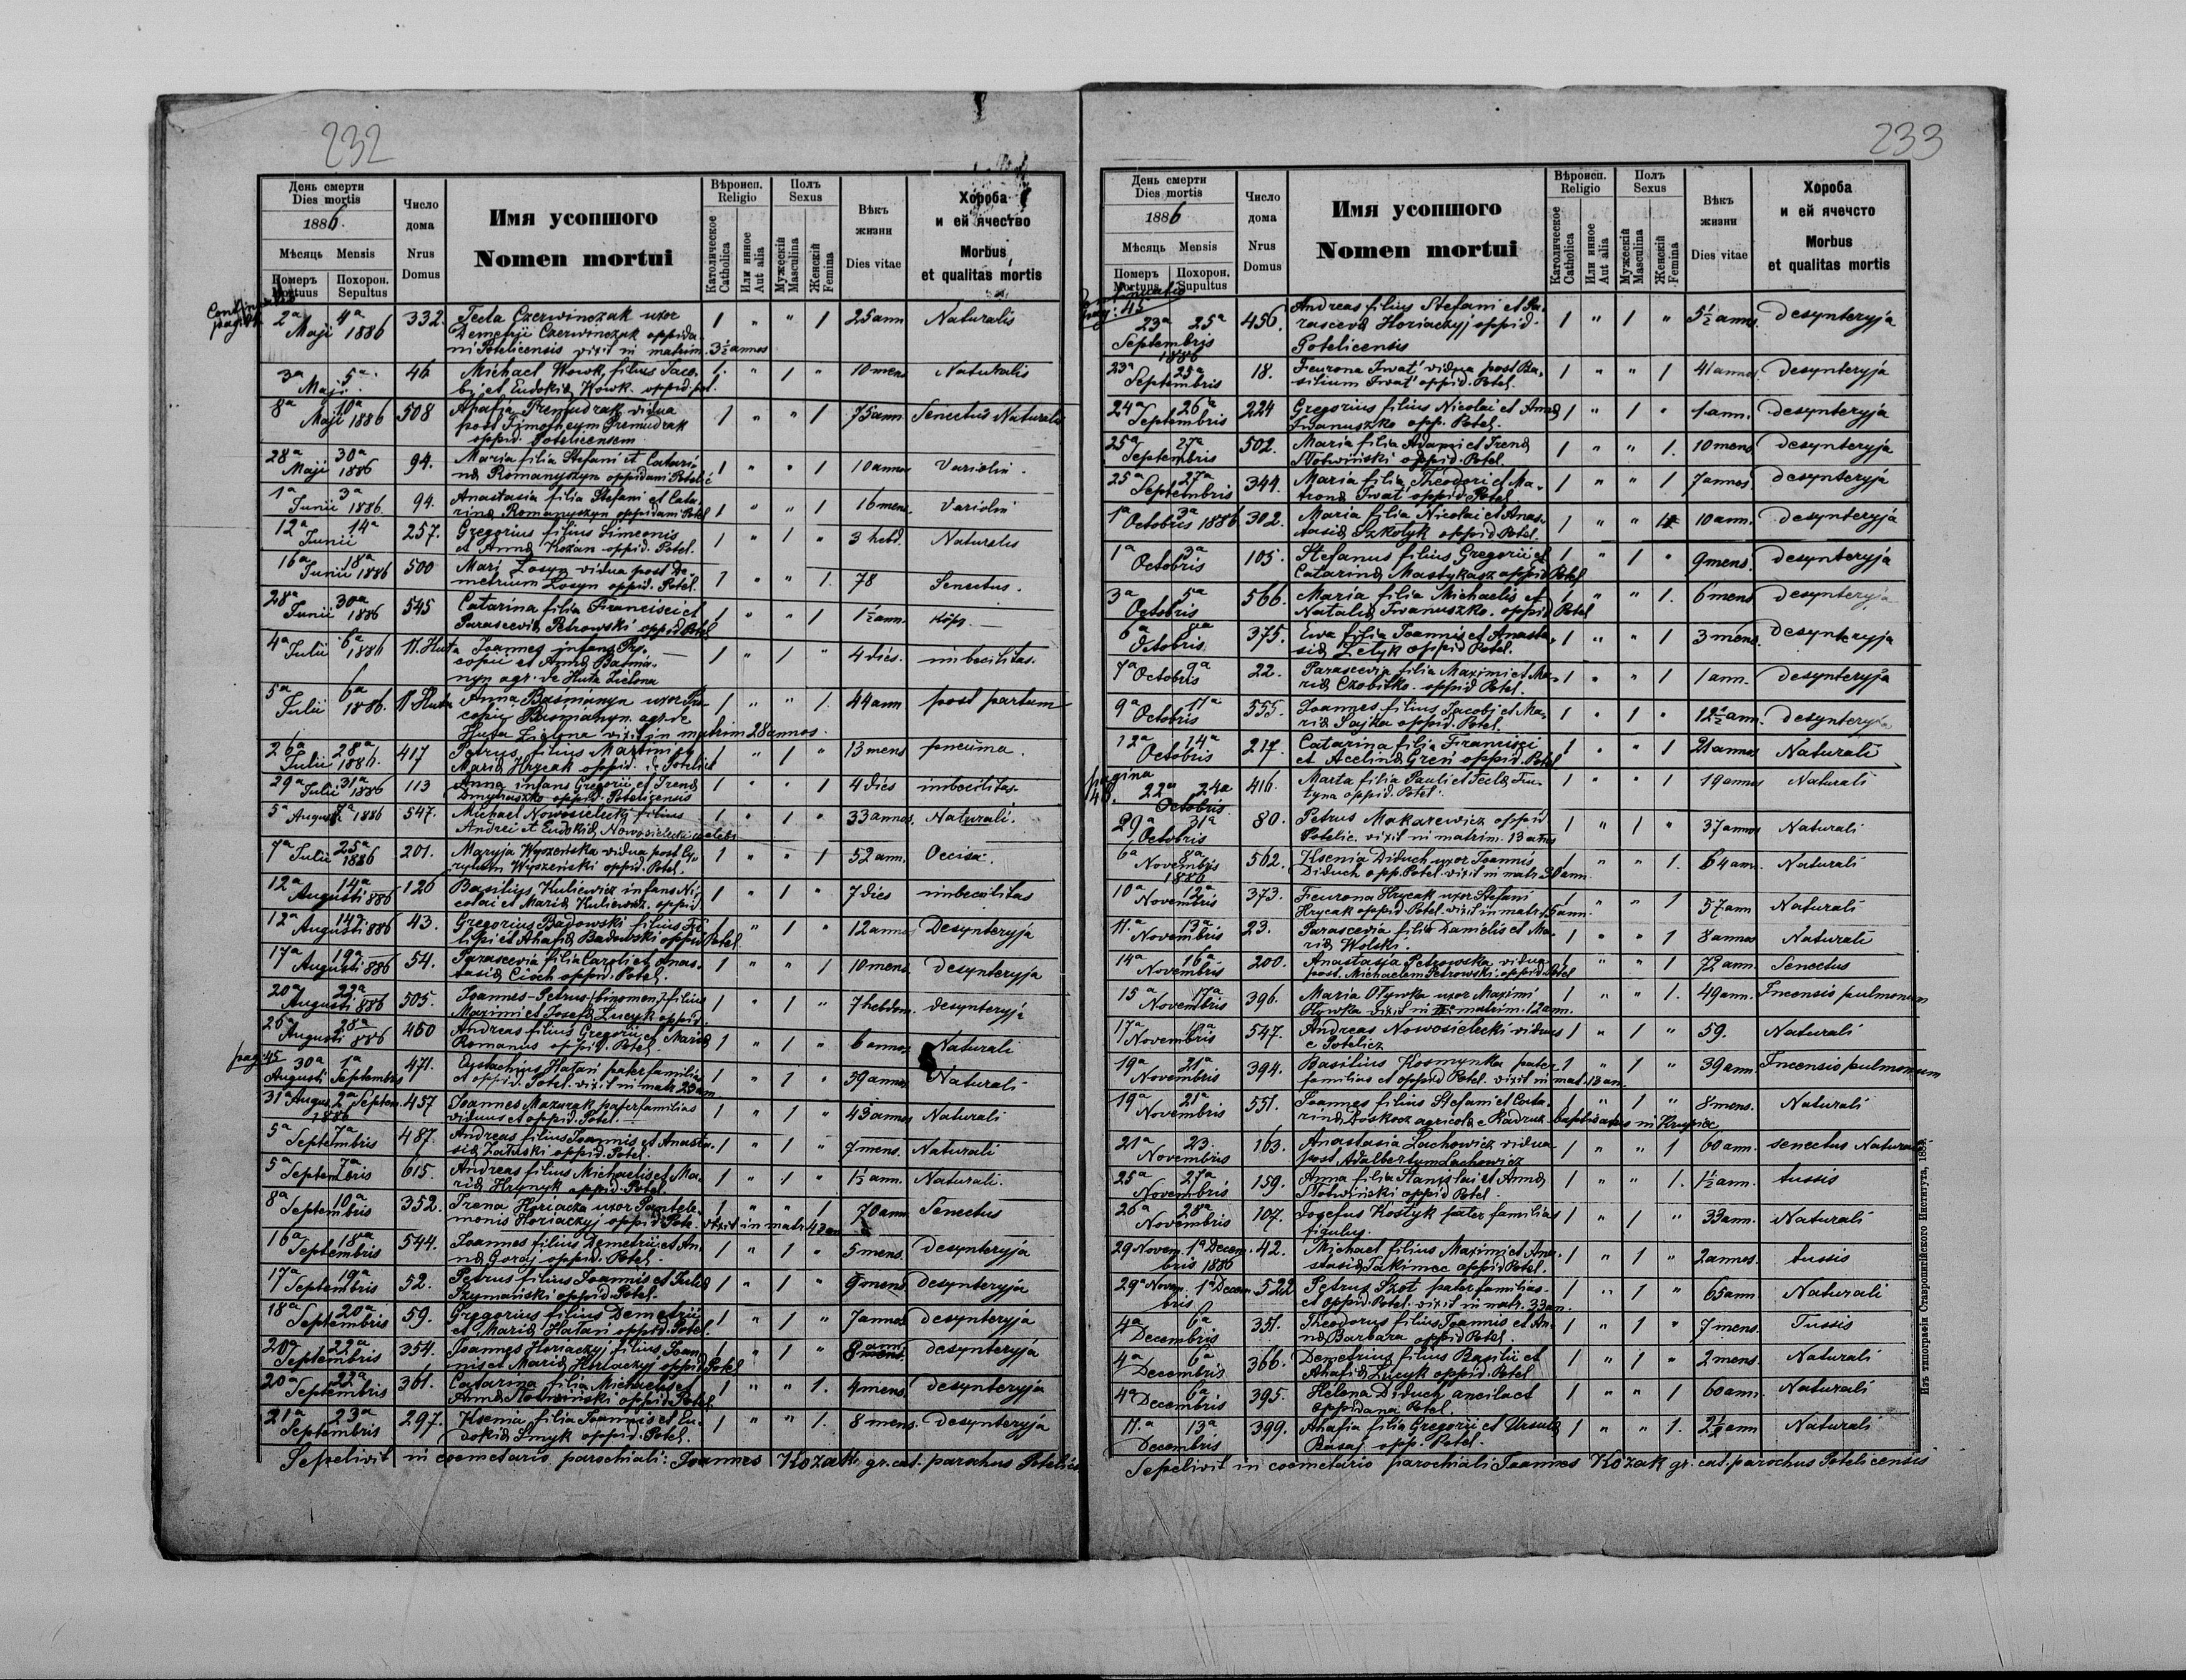 232
День смерти
Dies mortis
1886.
Мѣсяць Mensis
Номеръ Mortuus
Похорон. Sepultus
Число дома
Nrus Domus
Имя усопшого
Nomen mortui
Вѣроисп.
Religio
Католическое Catholica
Или инное Aut alia
Полъ
Sexus
Мужескій Masculina
Женскій Femina
Вѣкъ жизни
Dies vitae
Хороба
и ей ячество
Morbus
et qualitas mortis
2a 4a Maji 1886 332. Tecla Czerwinczak uxor 1 " " 1 25 ann Naturalis
Demetrii Czerwinczak oppida-
ni Potelicensis vixit in matrim. 3½ annos
3a 5a Maji 46 Michael Wowk, filius Jaco- 1 " 1 " 10 mens Naturalis
bi et Eudokia Wowk. oppid. pot.
8a 10a Maji 1886 508 Ahafia Premudrak vidua 1 " " 1 75 ann Senectus Naturalis
post Tymotheum Premudrak
oppid. Potelicensem
28a 30a Maji 1886 94. Maria filia Stefani et Catari- 1 " " 1 10 annos Variolin.
na Romanyszyn oppidani Potelic
1a 3a Junii 1886 94. Anastasia filia Stefani et Cata- 1 " " 1 16 mens. Variolin
rina Romanyszyn oppidani Potel
12a 14a Junii 257. Gregorius filius Simeonis 1 " 1 " 3 hebd. Naturalis
et Anna Kozan oppid. Potel.
16a 18a Junii 1886 500 Mari Losyn vidua post De- 1 " " 1. 78 Senectus.
metrium Losyn oppid. Potel.
28a 30a Junii 1886 545 Catarina filia Francisci et 1 " " 1 1½ ann.
Parascevia Petrowski oppid Potel
4a 6a Julii 1886 11. Huta Joannes infans Pro- 1 " 1 " 4 dies. imbecilitas.
copii et Anna Basma-
nyn agr. de Huta Zielona
5a 6a Julii 1886. 11 Huta Anna Basmanyn uxor Pro- 1 " " 1. 44 ann post partum
copii Basmanyn agr. de
Huta Zielona vixit in matrim 28 annos.
26a 28a Julii 1886. 417 Petrus filius Martini et 1 " 1 " 13 mens pneuma.
Maria Hrycak oppid. de Potelicz
29a 31a Julii 1886 113 Anna infans Gregorii et Irena 1 " " 1 4 dies imbecilitas.
Dmytruszko oppid. Potelicensis
5a 7a Augusti 1886 547. Michael Nowosielecki filius 1 " 1 " 33 annos. Naturali.
Andrei et Eudokia Nowosielecki caelebs
7a Julii 25a 1886 201. Maryja Wyszeńska vidua post Cy- 1 " " 1 52 ann. Occisa.
ryllum Wyszeński oppid. Potel.
12a 14a Augusti 886 126 Basilius Kuliewicz infans Ni- 1 " 1 " 7 dies imbecilitas
colai et Maria Kuliewicz. oppid
12a 14a. Augusti 886 43. Gregorius Badowski filius Fi- 1 " 1 " 12 annos Desynteryja
lipi et Ahafia Badowski oppid Potel.
17a 19a Augusti 886 54. Parascevia filia Caroli et Anas- 1 " " 1 10 mens desynteryja
tasia Cioch oppid. Potel.
20a 22a Augusti 886 505. Joannes-Petrus (binomen) filius 1 " 1 " 7 hebdom. desynteryja
Maximi et Josefa Lucyk oppid.
26a 28a Augusti 886 460 Andreas filius Gregorii et Maria 1 " 1 " 6 annos Naturali
Romanus oppid. Potel.
pag. 45
30a Augusti 1a Septembris 471. Eustachius Hatari paterfamilias 1 " 1 " 39 annos Naturali
et oppid. Potel. vixit in matr 23 am
31a Augus. 2a Septem. 1886 457 Joannes Mazurak paterfamilias 1 " 1 " 43 annos Naturali
viduus et oppid. Potel.
5a 7a Septembris 487. Andreas filius Joannis et Anasta- 1 " 1 " 7 mens. Naturali
sia Zatuski oppid. Potel.
5a 7a Septembris 615. Andreas filius Michaelis et Ma- 1 " 1 " 1½ ann. Naturali.
ria Hrynyk oppid. Potel.
8a 10a Septembris 352. Irena Horiacza uxor Pantele- 1 " " 1 70 ann Senectus
monis Horiaczyj oppid Pote. vixit in matr. 43 an
16a 18a Septembris 544. Joannes filius Demetrii et An- 1 " 1 " 5 mens. desynteryja
na Goraj oppid. Potel.
17a 19a Septembris 52. Petrus filius Joannis et Julia 1 " 1 " 9 mens desynteryja
Szymański oppid. Potel.
18a 20a Septembris 59. Gregorius filius Demetrii 1 " 1 " 7 annos desynteryja
et Maria Hatari oppid. Potel.
20a 22a Septembris 354. Joannes Horiaczyj filius Joan- 1 " 1 " 8 ann desynteryja
nis et Maria Horiaczyj oppid Potel
20a 22a Septembris 361. Catarina filia Michaelis et 1 " " 1. 4 mens. desynteryja
Anna Słotwiński oppid. Potel
21a 23a Septembris 297. Ksenia filia Joannis et Eu- 1 " " 1. 8 mens. desynteryja
dokia Smyk oppid. Potel.
Sepelivit in coemetario parochiali: Joannes Kozak gr. cat. parochus Potelic
233
День смерти
Dies mortis
1886
Мѣсяць Mensis
Померъ Mortuus
Похорон. Supultus
Число дома
Nrus Domus
Имя усопшого
Nomen mortui
Вѣроисп.
Religio
Католическое Catholica
Или инное Aut alia
Полъ
Sexus
Мужескій Masculina
Женскій Femina
Вѣкъ жизни
Dies vitae
Хороба
и ей ячечсто
Morbus
et qualitas mortis
Continuatio pag: 45
23a 25a Septembris 1886 456. Andreas filius Stefani et Pa- 1 " 1 " 5½ annos desynteryja
rasceva Horiaczyj oppid.
Potelicensis
23a 25a Septembris 18. Feurona Iwat' vidua post Ba- 1 " " 1 41 annos. desynteryja
silium Iwat' oppid. Potel.
24a 26a Septembris 224 Gregorius filius Nicolai et Anna 1 " 1 " 1 ann. desynteryja
Iwanuszko opp. Potel.
25a 27a Septembris 502. Maria filia Adami et Irena 1 " " 1. 10 mens desynteryja
Słotwiński oppid. Potel.
25a 27a Septembris 344. Maria filia Theodori et Ma- 1 " " 1 7 annos desynteryja
trona Iwat' oppid. Potel.
1a 3a Octobris 1886 302. Maria filia Nicolai et Anas- 1 " " 1 10 ann. desynteryja
tasia Szkolyk oppid Potel.
1a 3a Octobris 105. Stefanus filius Gregorii et 1 " 1 " 9 mens. desynteryja
Catarina Mastykasz oppid Potel
3a 5a Octobris 566. Maria filia Michaelis et 1 " " 1. 6 mens desynteryja
Natalia Iwanuszko. oppid Potel
6a 8a Octobris 375. Ewa filia Joannis et Anasta- 1 " " 1 3 mens. desynteryja
sia Letyk oppid Potel.
7a 9a Octobris 22. Parascevia filia Maximi et Ma- 1 " " 1 1 ann. desynteryja
ria Czobitko. oppid Potel.
9a 11a Octobris 555. Joannes filius Jacobi et Ma- 1 " 1 " 12½ ann. desynteryja
ria Sajka oppid. Potel.
12a 14a Octobris 217. Catarina filia Francisci 1 " " 1 21 annos Naturali
et Acelina Greń oppid. Potel
pagina 46.
22a 24a Octobris 416. Marta filia Pauli et Tecla Tru- 1 " " 1 19 annos Naturali
tyna oppid. Potel.
29a 31a Octobris 80. Petrus Makarewicz oppid 1 " 1 " 37 annos Naturali
Potelic. vixit in matrim. 13 annos
6a 8a Novembris 1886 562. Ksenia Diduch uxor Joannis 1 " " 1. 64 ann. Naturali
Diduch opp. Potel. vixit in matr. 30 ann.
10a 12a Novembris 373. Feurona Hrycak uxor Stefani 1 " " 1 57 ann Naturali
Hrycak oppid. Potel. vixit in matr. 15 ann.
11. 13a Novembris 23. Parascevia filia Danielis et Ma- 1 " " 1 8 annos Naturali
ria Wolski.
14a 16a Novembris 200. Anastasja Petrowska vidua 1 " " 1 72 ann. Senectus
post. Michaelem Petrowski. oppid. Potel
15a 17a Novembris 396. Maria Oływka uxor Maximi 1 " " 1. 49 ann. Incensio pulmonum
Oływka vixit in matrim. 12 ann.
17a 19a Novembris 547. Andreas Nowosielecki viduus 1 " 1 " 59. Naturali
e Potelicz
19a 21a Novembris 394. Basilius Kosmynka pater 1 " 1 " 39 ann Incensio pulmonum
familias et oppid Potel. vixit in mat. 13 an.
19a 21a Novembris 551. Joannes filius Stefani et Cata- 1 " 1 " 8 mens. Naturali
rina Doskocz agricola e Radruż baptisatus in
21a 23. Novembris 163. Anastasia Lachowicz vidua 1 " " 1 60 ann. senectus Natural
post Adalbertum Lachowicz
25a 27a Novembris 159. Anna filia Stanislai et Anna 1 " " 1. 1½ ann. tussis
Słotwiński oppid Potel.
26a 28a Novembris 107. Josefus Kostyk pater familias 1 " 1 " 33 ann. Naturali
figulus.
29 Novembris 1a Decem. 1886 42. Michael filius Maximi et Ana- 1 " 1 " 2 annos tussis
stasia Jakimec oppid Potel.
29a Novembris 1a Decem. 522 Petrus Szot paterfamilias 1 " 1 " 65 ann Naturali
et oppid. Potel. vixit in matr. 33 an.
4a 6a Decembris 351. Theodorus filius Joannis et An- 1 " 1 " 7 mens. Tussis
na Barbara oppid Potel.
4a 6a Decembris 366. Demetrius filius Basilii et 1 " 1 " 2 mens. Naturali
Ahafia Lucyk oppid. Potel
4a 6a Decembris 395. Helena Diduch ancilla et 1 " " 1 60 ann. Naturali
oppidana Potel.
11.a 13a Decembris 399. Ahafia filia Gregorii et Ursula 1 " " 1. 2½ ann Naturali
Basaj opp. Potel.
Sepelivit in coemetario parochiali Joannes Kozak gr. cat. parochus Potelicensis
Изъ типографіи Ставропигійского Института, 1885.